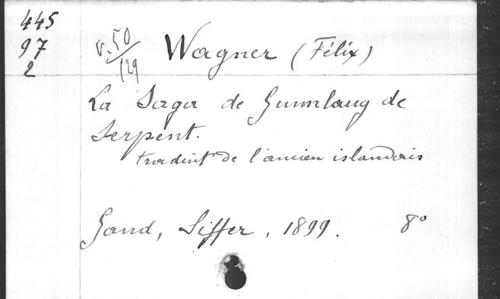 445
97
2
v.50
/129
Wagner (Félix)
La Saga de Gunnlaug de
Serpent.
traduit de l'ancien islandais
Gand, Siffer, 1899. 8°